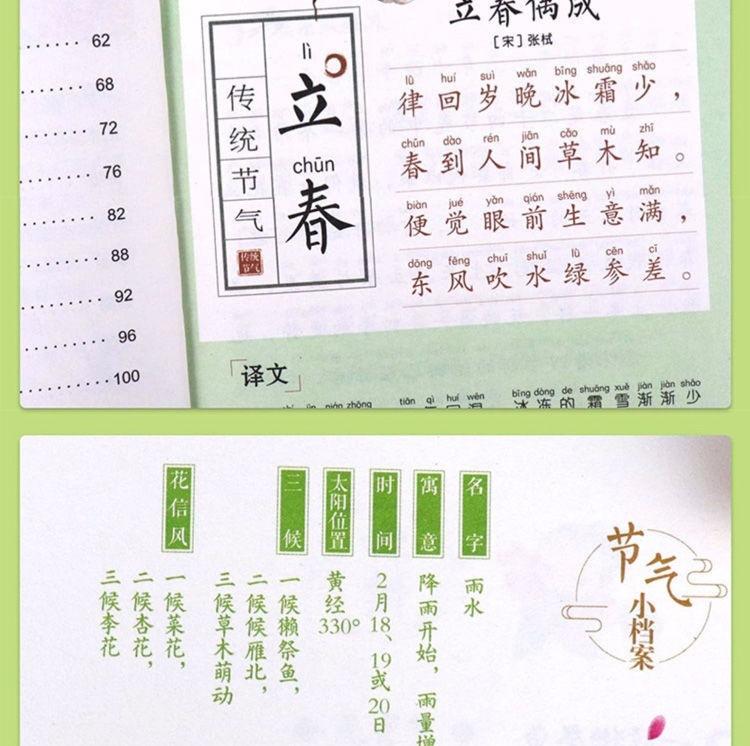 62
68
72
76
82
88
92
96
100
传统节气
lì
立
chūn
春
传统
节气
立春偶成
[宋]张栻
lǜ huí suì wǎn bīng shuāng shǎo
律回岁晚冰霜少，
chūn dào rén jiān cǎo mù zhī
春到人间草木知。
biàn jué yǎn qián shēng yì mǎn
便觉眼前生意满，
dōng fēng chuī shuǐ lǜ cēn cī
东风吹水绿参差。
「译文」
nián zhōng tiān qì huí wēn bīng dòng de shuāng xuě jiàn jiàn shǎo
冰冻的霜雪渐渐少
节气
小档案
名字
雨水
寓意
降雨开始，雨量增
时间
2月18、19或20日
太阳位置
黄经330°
三候
一候獭祭鱼，
二候候雁北，
三候草木萌动
花信风
一候菜花，
二候杏花，
三候李花